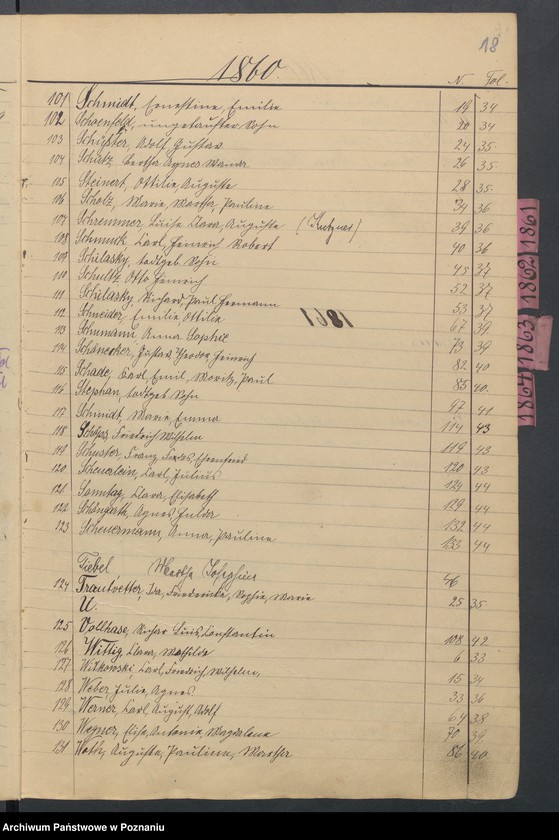 18
1860
N. Fol.
101 Schmidt, Ernestine, Emilie 19 34
102 Schoenfeld, ungetaufter Sohn 20 34
103 Schuster, Adolf Gustav 24 35
104 Schütz, Bertha Agnes Wanda 26 35
105 Steinert, Ottilie, Auguste 28 35
106 Scholz, Marie, Martha, Pauline 34 36
107 Schremmer, Luise Clara, Auguste 39 36
108 Schmuck, Carl, Heinrich Robert 40 36
109 Schilasky, todtgeb Sohn 45 37
110 Schultz, Otto Heinrich 52 37
111 Schilasky, Richard, Paul Hermann 53 37
112 Schneider, Emilie, Ottilie 67 39
113 Schumann, Anna Sophie 73 39
114 Schönecker, Gustav Theodor, Heinrich 82 40
115 Schade, Carl, Emil, Moritz, Paul 85 40
116 Stephan, todtgeb Sohn 97 41
117 Schmidt, Marie, Emma 114 43
118 Friedrich Wilhelm 119 43
119 Schuster, Franz, Ehrenfried 120 43
120 Scheuerlein, Carl, Julius 124 44
121 Sonntag, Clara, Elisabeth 129 44
122 Schöngarth, Agnes, Hulda 132 44
123 Scheuermann, Anna, Pauline 133 44
Tiebel Martha Josephine 46
124 Trautvetter, Ida, Friedericke, Sophie, Marie 25 35
U.
125 Vollhase, Richar Luis, Constantin 108 42
126 Wittig, Clara, Mathilde 6 33
127 Witkowski, Carl, Friedrich, Wilhelm, 15 34
128 Weber, Julie, Agnes. 33 36
129 Werner, Carl August, Adolf 64 38
130 Wegner, Elise, Antonie, Magdalene 70 39
131 Woth, Auguste, Pauline, Martha 86 40
1861
1862
1863
1864
Archiwum Państwowe w Poznaniu